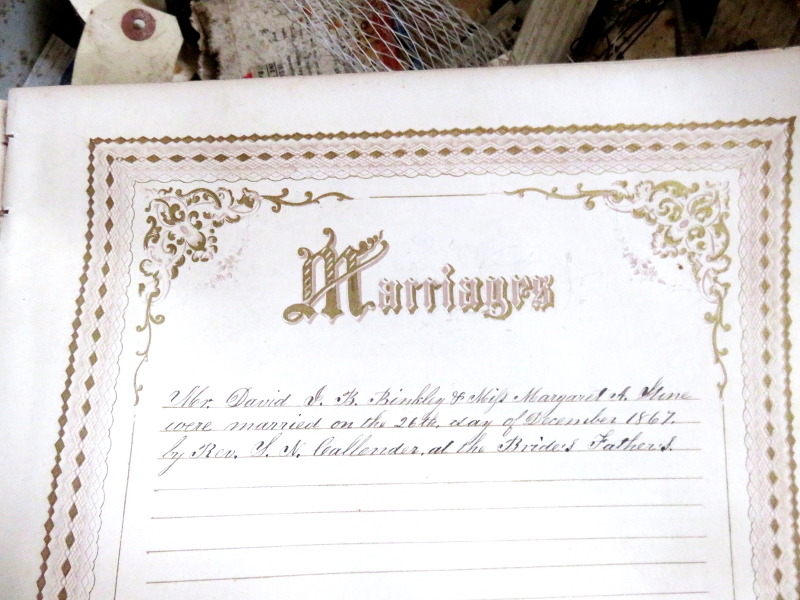 Marriages
Mr. David I. B. Binkley & Miss Margaret A. Stine
were married on the 26th. day of December 1867.
by Rev. S. N. Callender, at the Bride's Father's.